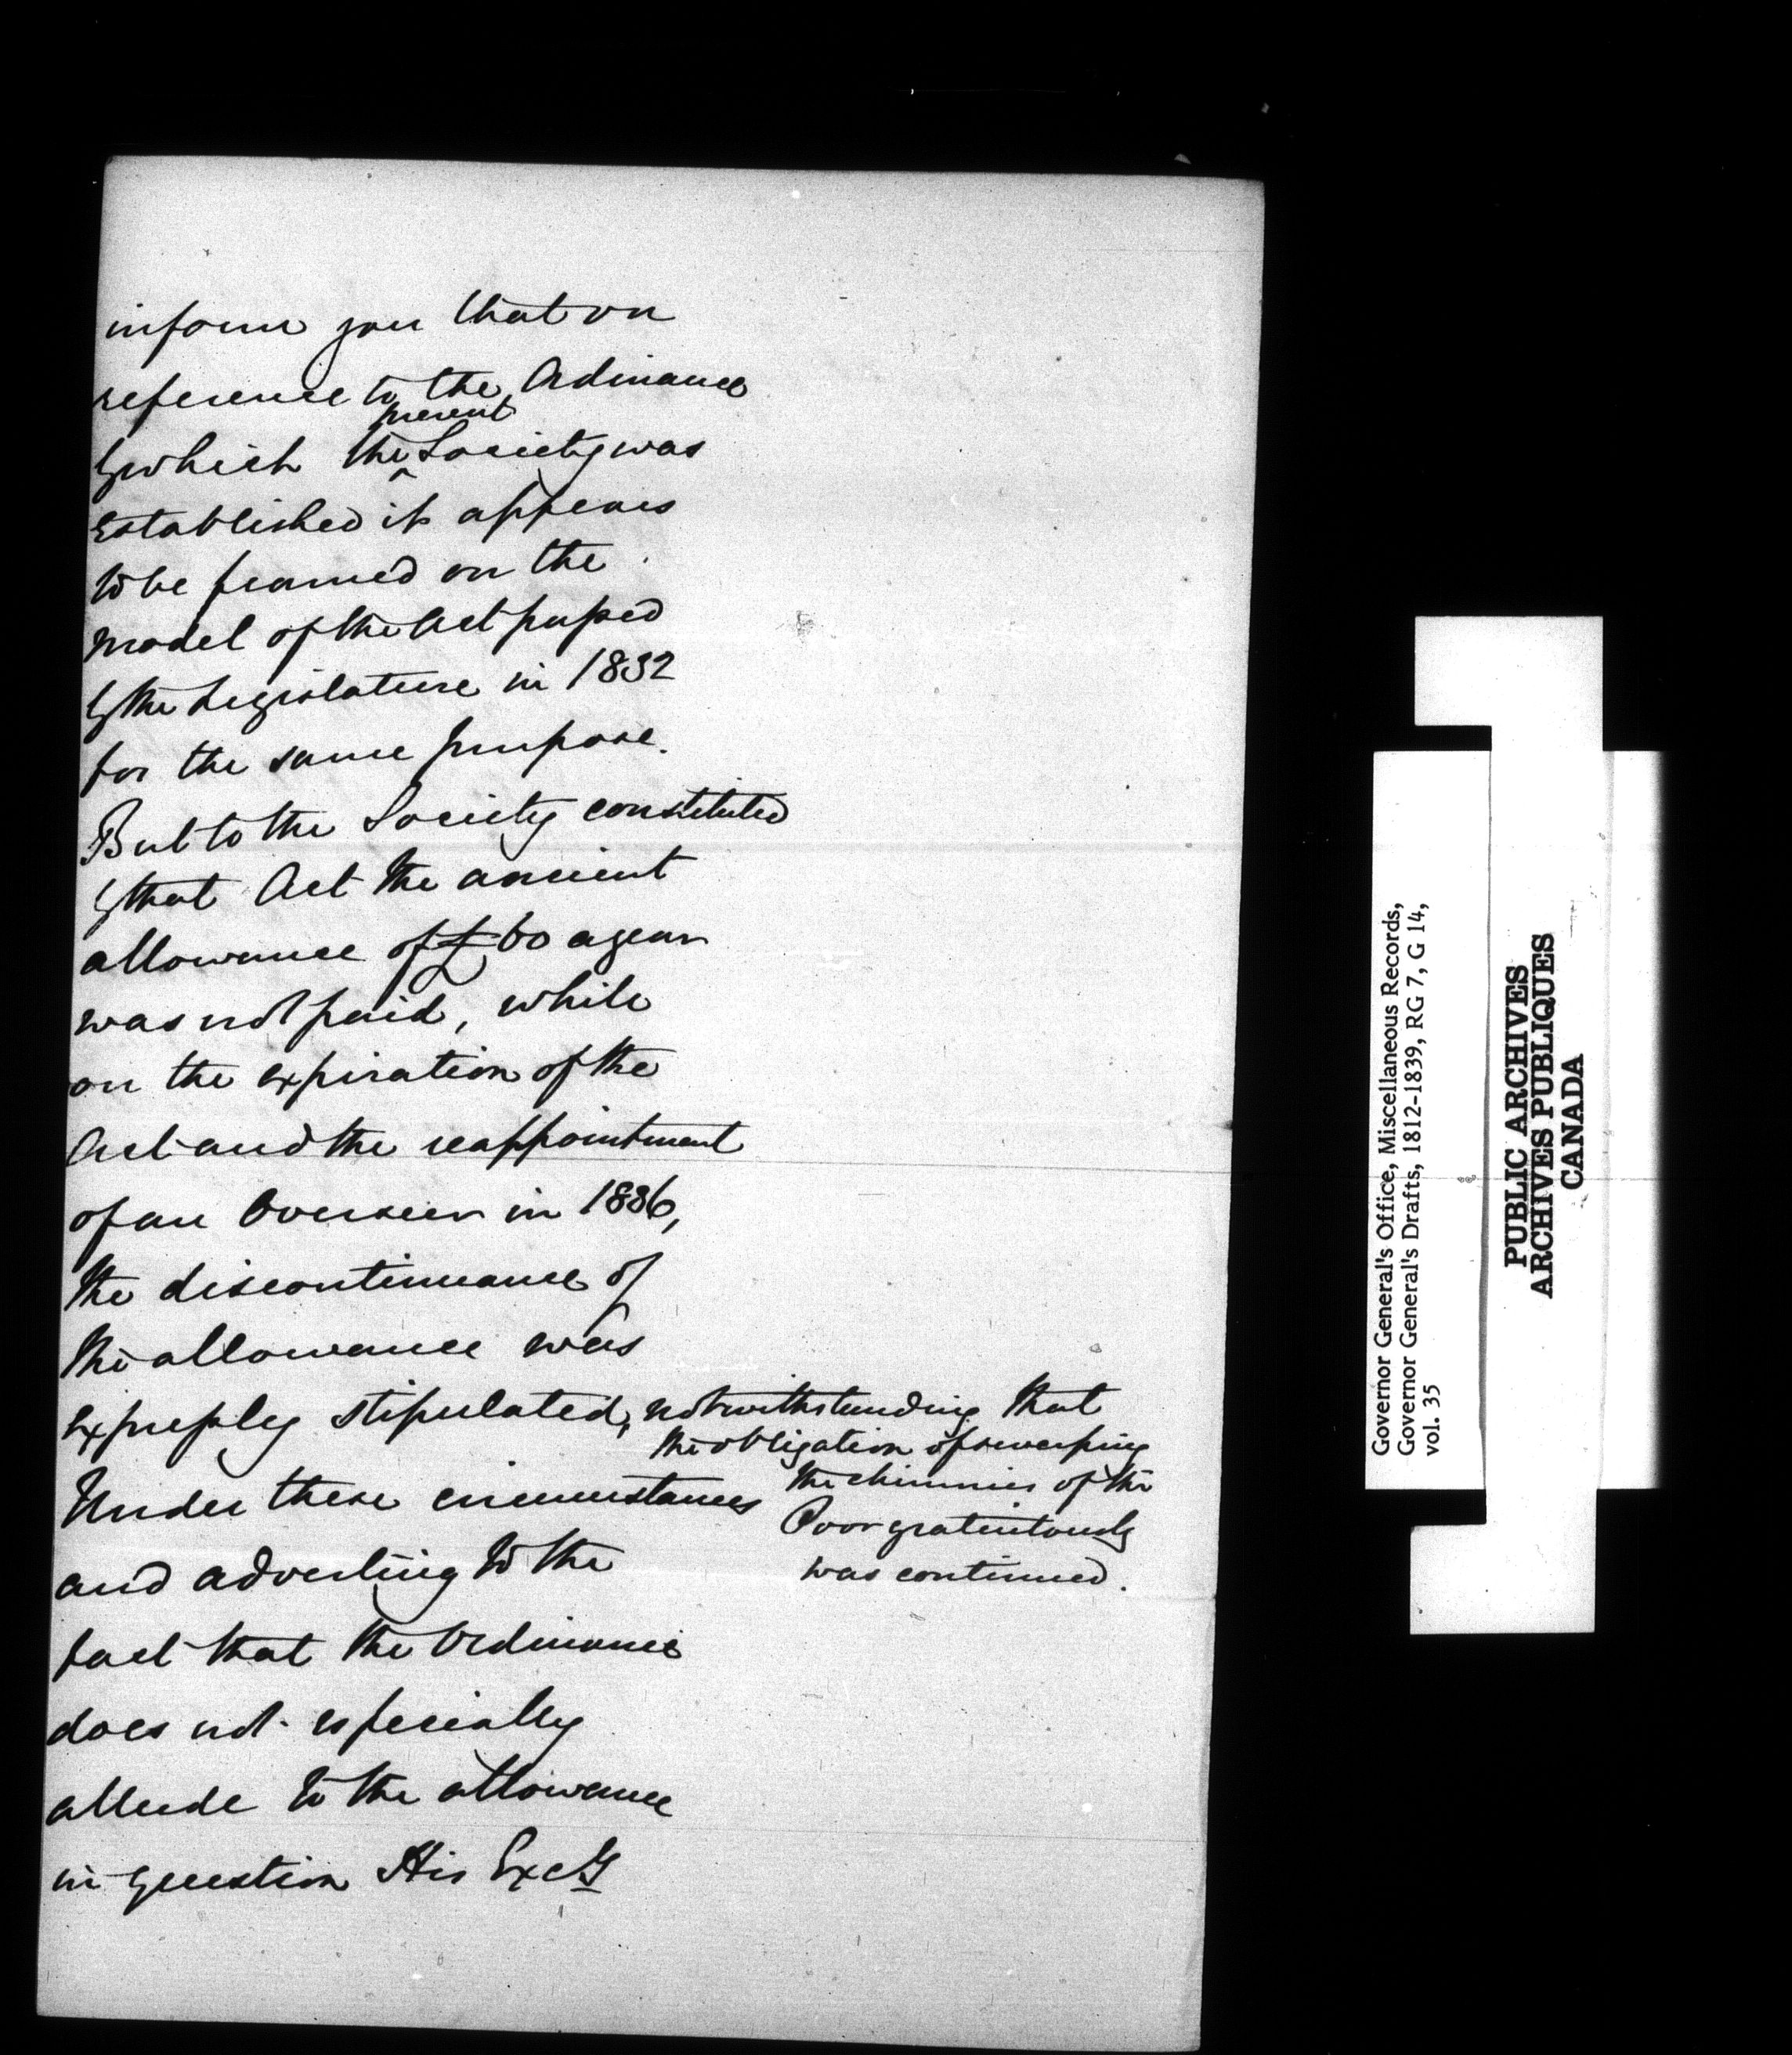 inform you that on
reference to the Ordinance
by which the present Society was
Established it appears
to be framed on the
model of the Act passed
by the Legislature in 1832
for the same purpose.
But to the Society constituted
by that Act the ancient
allowance of £60 a year
was not paid, while
on the expiration of the
Act and the reappointment
of an Overseer in 1836,
the discontinuance of
the allowance was
expressly stipulated, notwithstanding that
the obligation of sweeping
the chimnies of the
Poor gratuitously
was continued.
Under these circumstances
and adverting to the
fact that the Ordinance
does not especially
allude to the allowance
in question His Excy
Governor General's Office, Miscellaneous Records,
Governor General's Drafts, 1812-1839, RG 7, G 14,
vol. 35
PUBLIC ARCHIVES
ARCHIVES PUBLIQUES
CANADA